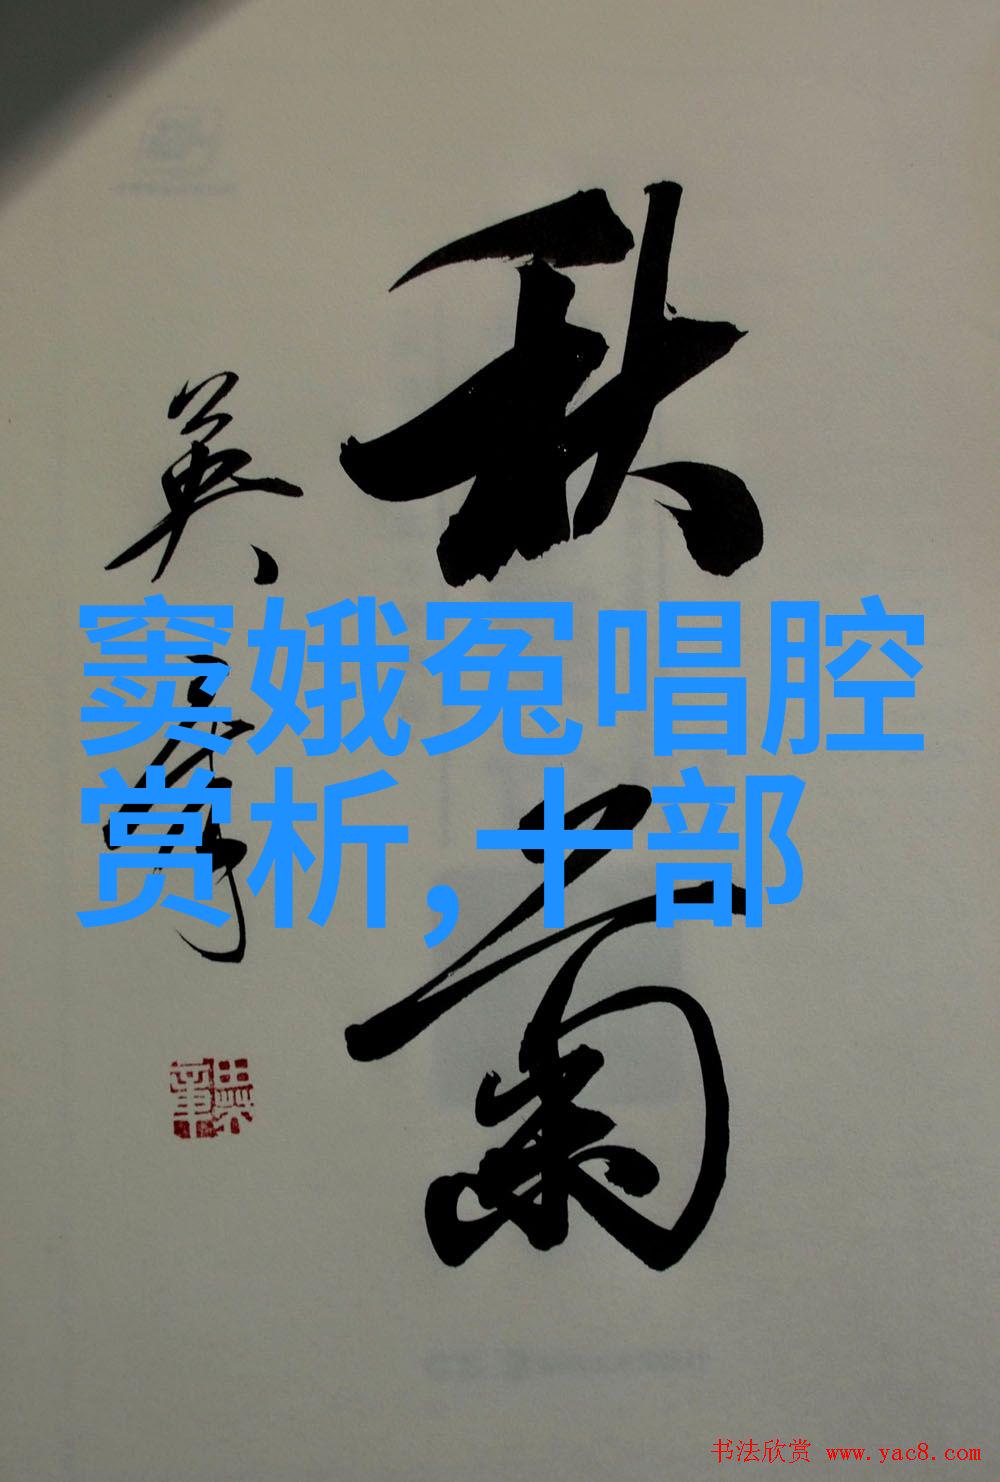 秋菊
英
窦娥冤唱腔
赏析,十部
书法欣赏 www.yac8.com